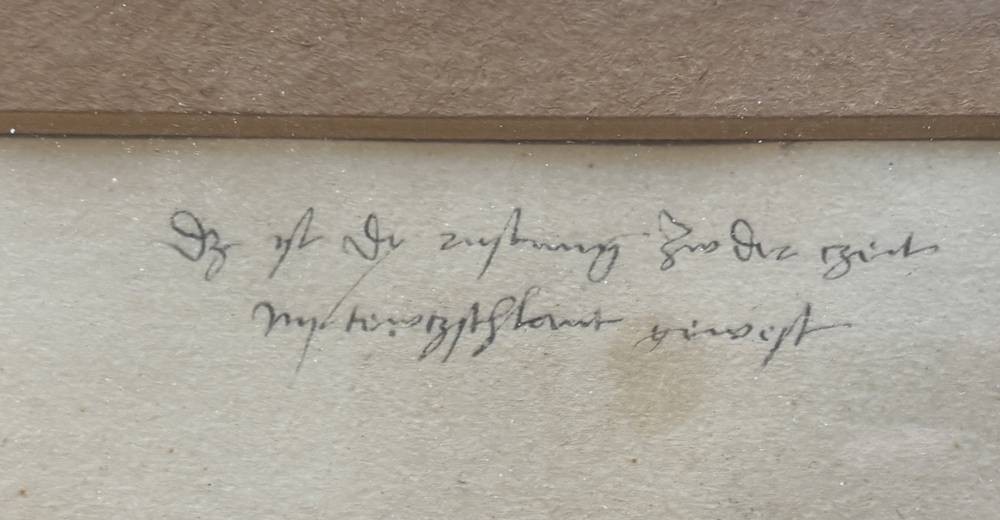 Dz ist dy rustung Zw der czeit
Im tewtzschlant gewest